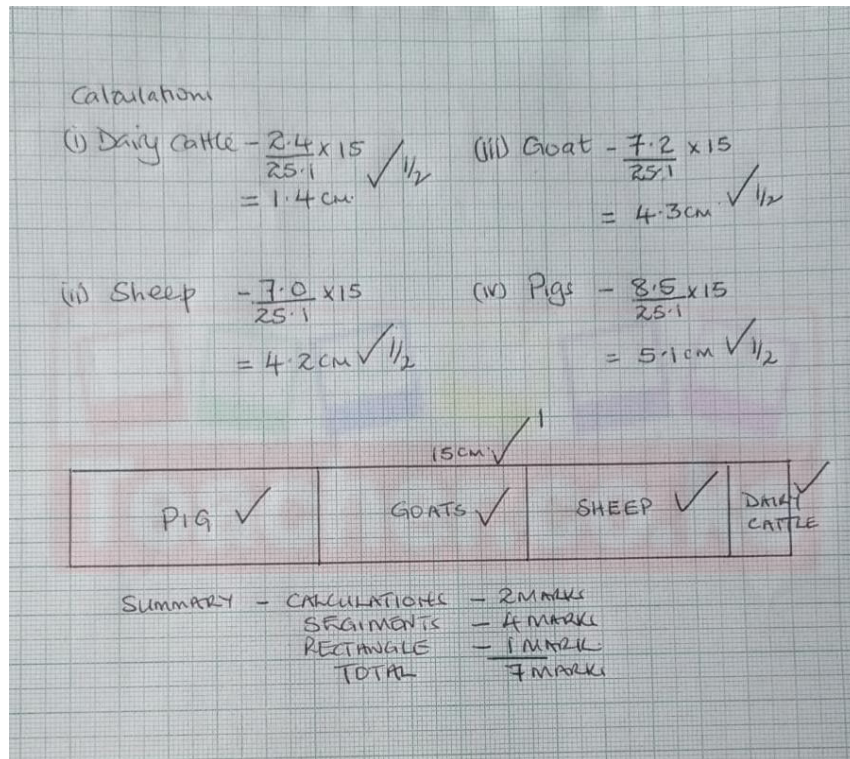 Calculations
(i) Dairy Cattle - 2.4 x 15 ✓ 1/2
25.1
= 1.4 cm.
(iii) Goat - 7.2 x 15
25.1
= 4.3cm ✓ 1/2
(ii) Sheep - 7.0 x15
25.1
= 4.2cm ✓ 1/2
(iv) Pigs - 8.5 x15
25.1
= 5.1cm ✓ 1/2
15CM ✓ 1
PIG ✓
GOATS ✓
SHEEP ✓
DAIRY ✓
CATTLE
SUMMARY - CALCULATIONS - 2MARKS
SEGIMENTS - 4MARKS
RECTANGLE - 1MARK
TOTAL 7MARKS